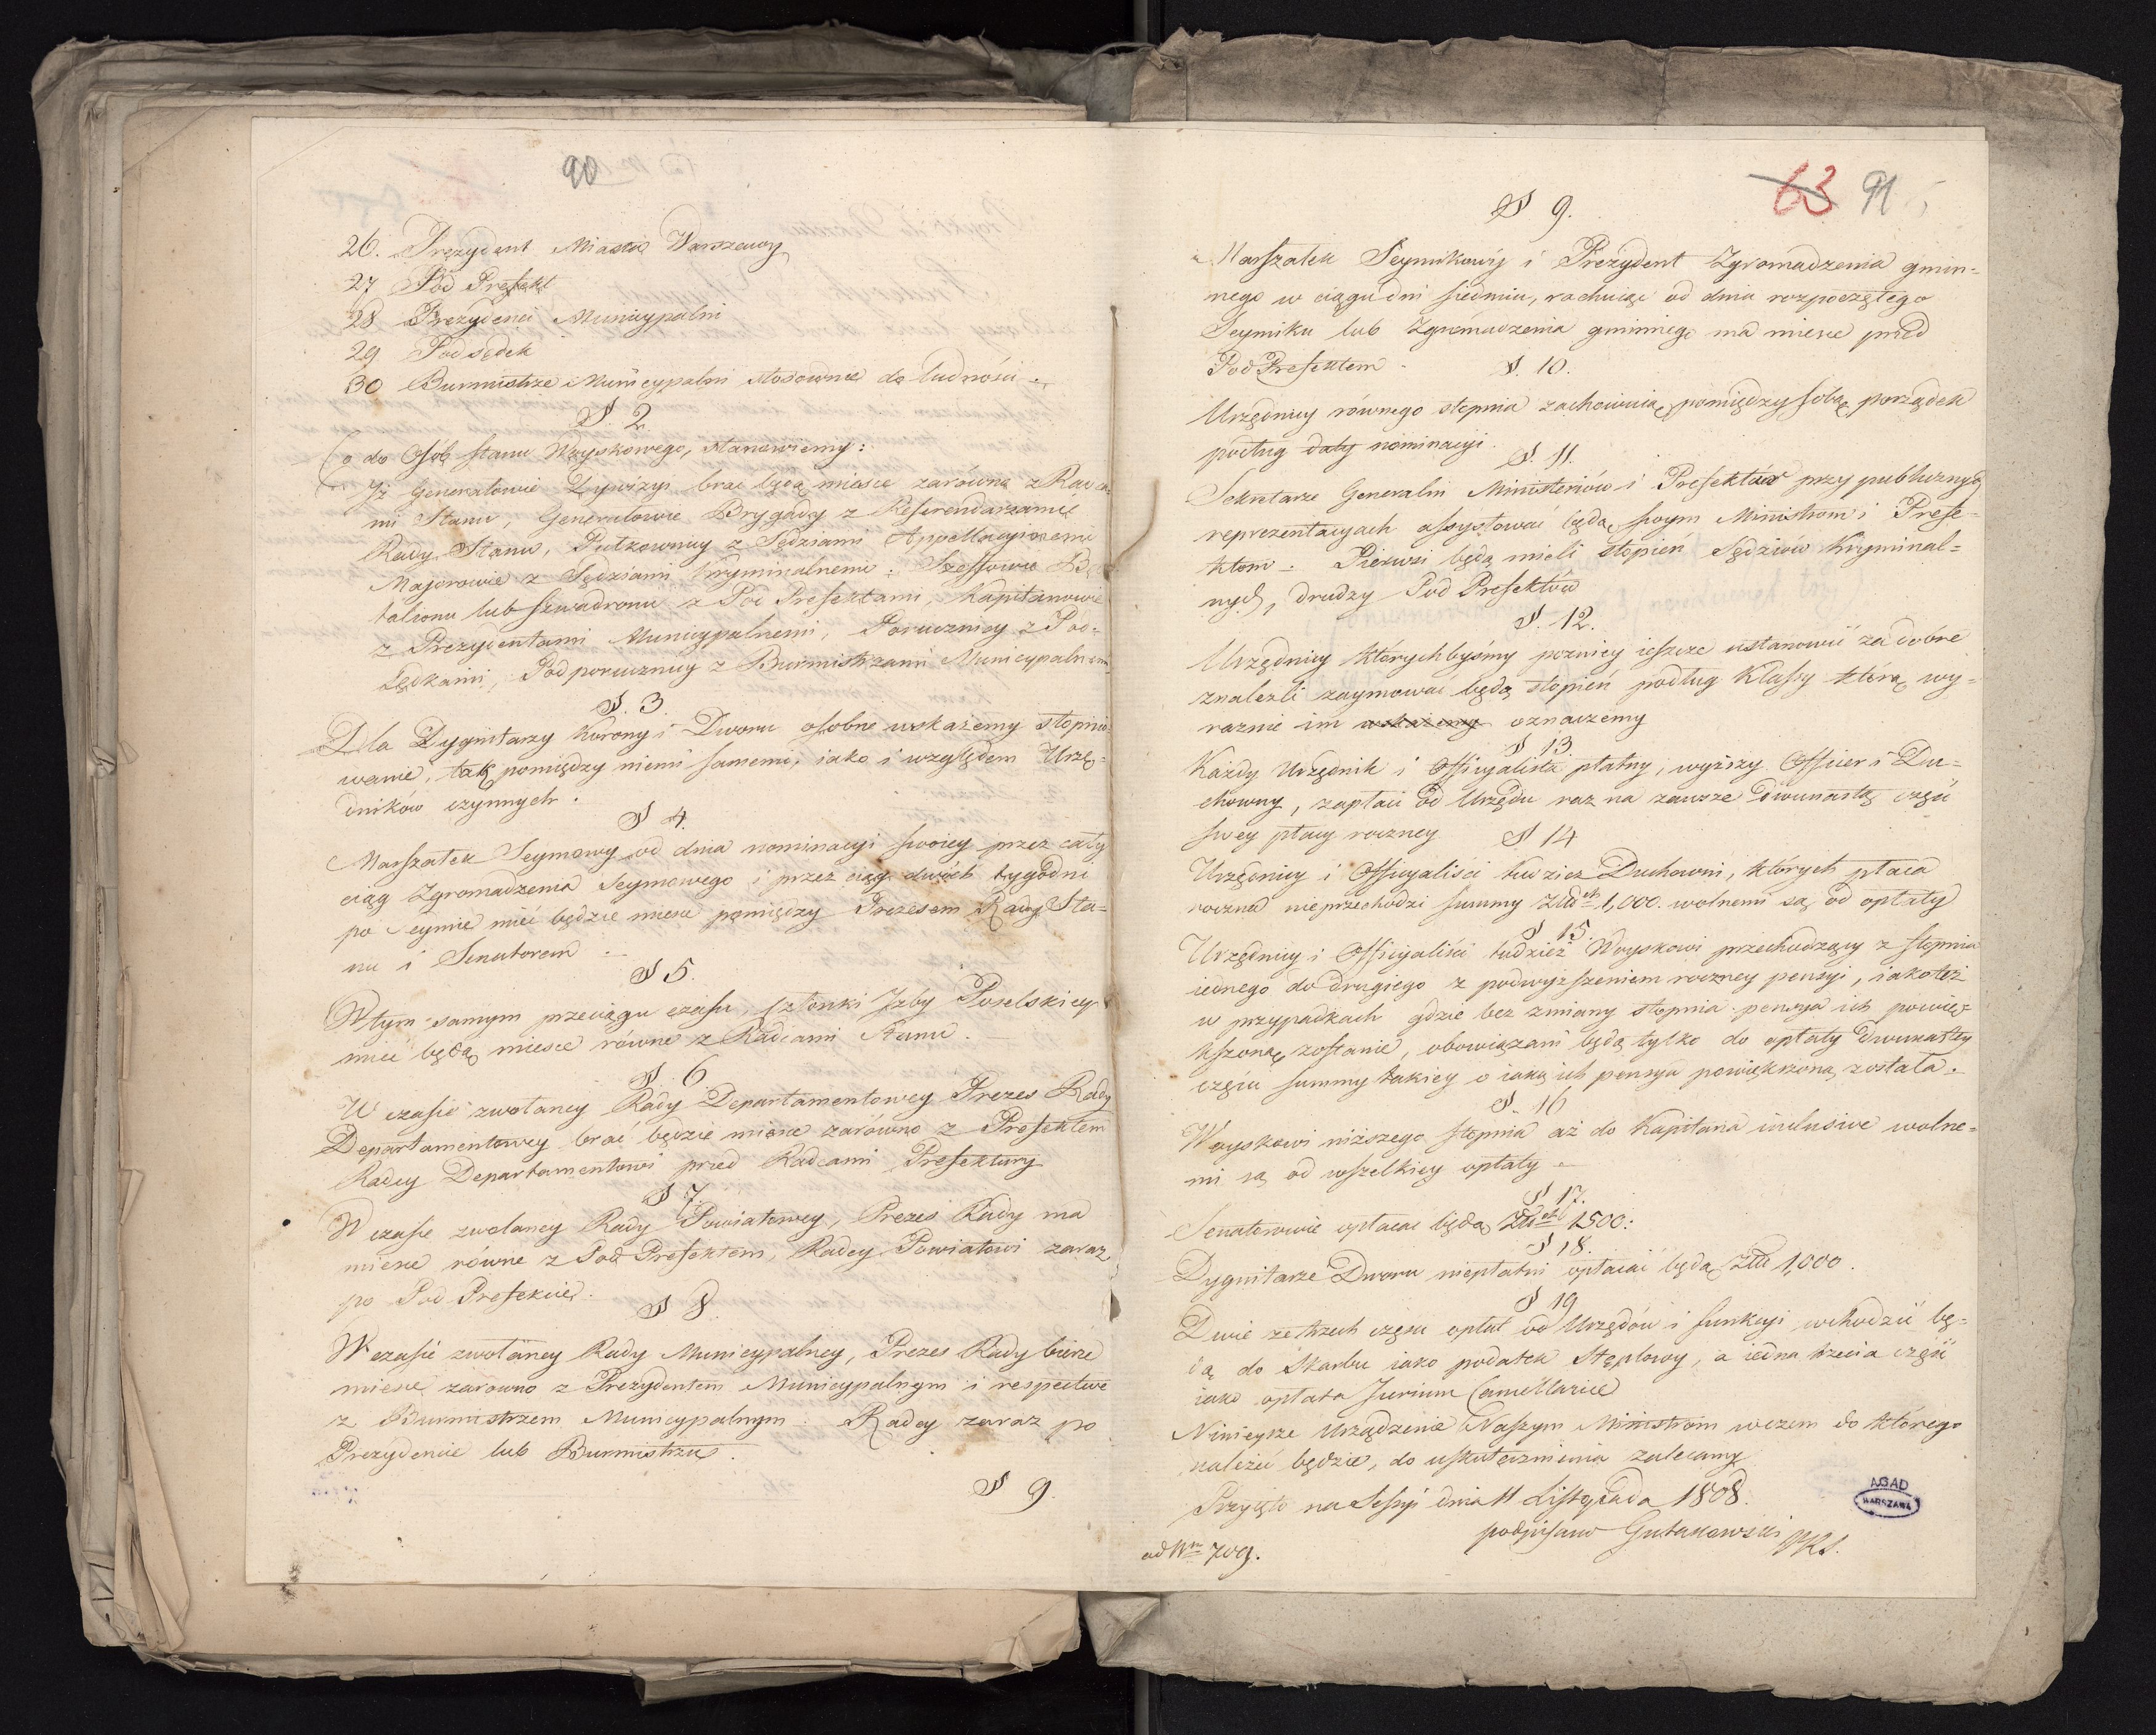 90
26. Prezydent Miasta Warszawy
27 Pod Prefekt
28 Prezydenci Municypalni
29 Podsędek
30 Burmistrze Municypalni stosownie do ludności.
§. 2.
Co do Osób stanu Woyskowego, stanowiemy:
Iż Generałowie Dywizyi brać będą mieisce zarówno z Radca-
mi Stanu, Generałowie Brygady z Referendarzami
Rady Stanu, Pułkownicy z Sędziami Appellacyinemi
Majorowie z Sędziami Kryminalnemi. Szeffowie Ba
talionu lub szwadronu z Pod Prefektami, Kapitanowie
z Prezydentami Municypalnemi, Porucznicy z Pod-
sędkami, Podporucznicy z Burmistrzami Municypalnemi
§. 3.
Dla Dygnitarzy Korony i Dworu osobne wskażemy stopnio-
wanie, tak pomiędzy niemi samemi, iako i względem Urzę-
dników czynnych.
§ 4.
Marszałek Seymowy od dnia nominacyi swoiey przez cały
ciąg Zgromadzenia Seymowego i przez ciąg dwóch tygodni
po Seymie mieć będzie mieisce pomiędzy Prezesem Rady Sta-
nu i Senatorem
§ 5.
W tym samym przeciągu czasu, członki Izby Poselskiey
mieć będą mieisce równe z Radcami Stanu.
§. 6.
W czasie zwołaney Rady Departamentowey Prezes Rady
Departamentowey brać będzie mieisce zarówno z Prefektem
Radcy Departamentowi przed Radcami Prefektury
§ 7.
W czasie zwołaney Rady Powiatowey, Prezes Rady ma
mieisce równe z Pod Prefektem, Radcy Powiatowi zaraz
po Pod Prefekcie.
§ 8
W czasie zwołaney Rady Municypalney, Prezes Rady bierze
mieisce zarowno z Prezydentem Municypalnym i respective
z Burmistrzem Municypalnym. Radcy zaraz po
Prezydencie lub Burmistrzu.
§ 9.
63 91
§ 9.
Marszałek Seymikowy i Prezydent Zgromadzenia gmin-
nego w ciągu dni siedmiu, rachuiąc od dnia rozpoczętego
Seymiku lub Zgromadzenia gminnego ma mieisce przed
Pod Prefektem.
§. 10.
Urzędnicy równego stopnia zachowuią pomiędzy sobą porządek
podług daty nominacyi.
§. 11.
Sekretarze Generalni Ministeriów i Prefektur przy publicznych
reprezentacyach assystować będą swym Ministrom i Prefe-
ktom. Pierwsi będą mieli stopień Sędziów Kryminal-
nych, drudzy Pod Prefektów
§. 12.
Urzędnicy którychbyśmy pozniey ieszcze ustanowić za dobre
znalezli zaymować będą stopień podług Klassy którą wy-
raznie im wskażemy oznaczemy
§ 13.
Każdy Urzędnik i Officyalista płatny, wyższy Officer i Du-
chowny, zapłaci od Urzędu raz na zawsze dwunastą część
swey płacy roczney
§ 14
Urzędnicy i Officyaliści tudzież Duchowni, których płaca
roczna nieprzechodzi summy Złłch 1,000. wolnemi są od opłaty
§ 15.
Urzędnicy i Officyaliści tudzież Woyskowi przechodzący z stopnia
iednego do drugiego z podwyższeniem roczney pensyi, iakoteż
w przypadkach gdzie bez zmiany stopnia pensya ich powię-
kszoną zostanie, obowiązani będą tylko do opłaty dwunastey
części summy takiey o iaką ich pensya powiększoną została.
§. 16
Woyskowi niższego stopnia aż do Kapitana inclusive wolne-
mi są od wszelkiey opłaty
§ 17.
Senatorowie opłacać będą Złłch 1500:
§ 18.
Dygnitarze Dworu niepłatni opłacać będą Złł 1,000.
§ 19
Dwie ze trzech części opłat od Urzędów i funkcyi wchodzić bę-
dą do Skarbu iako podatek Stęplowy, a iedna trzecia część
iako opłata Jurium Cancellariae
Ninieysze Urządzenie Naszym Ministrom wczem do którego
należeć będzie, do uskutecznienia zalecamy
Przyięto na Sessyi dnia 11 Listopada 1808.
podpisano Gutakowski PRS.
ad Nm 709.
AGAD
WARSZAWA